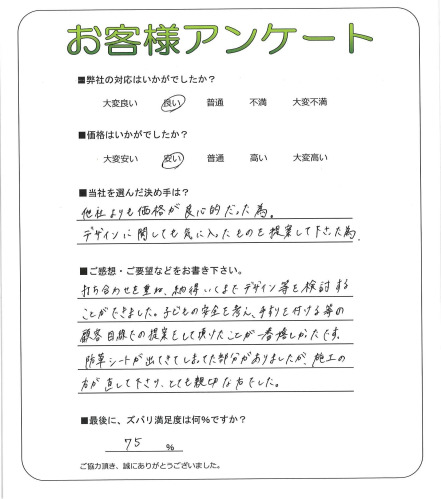 お客様アンケート
■弊社の対応はいかがでしたか?
大変良い 良い 普通 不満 大変不満
■価格はいかがでしたか?
大変安い 安い 普通 高い 大変高い
■当社を選んだ決め手は?
他社よりも価格が良心的だった為。
デザインに関しても気に入ったものを提案して下さった為。
■ご感想・ご要望などをお書き下さい。
打ち合わせを重ね、納得いくまでデザイン等を検討する
ことができました。子どもの安全を考え、手すりを付ける等の
顧客目線での提案をして頂けたことが一番嬉しかったです。
防草シートが出てきてしまってた部分がありましたが、施工の
方が直して下さり、とても親切な方でした。
■最後に、ズバリ満足度は何%ですか?
75 %
ご協力頂き、誠にありがとうございました。